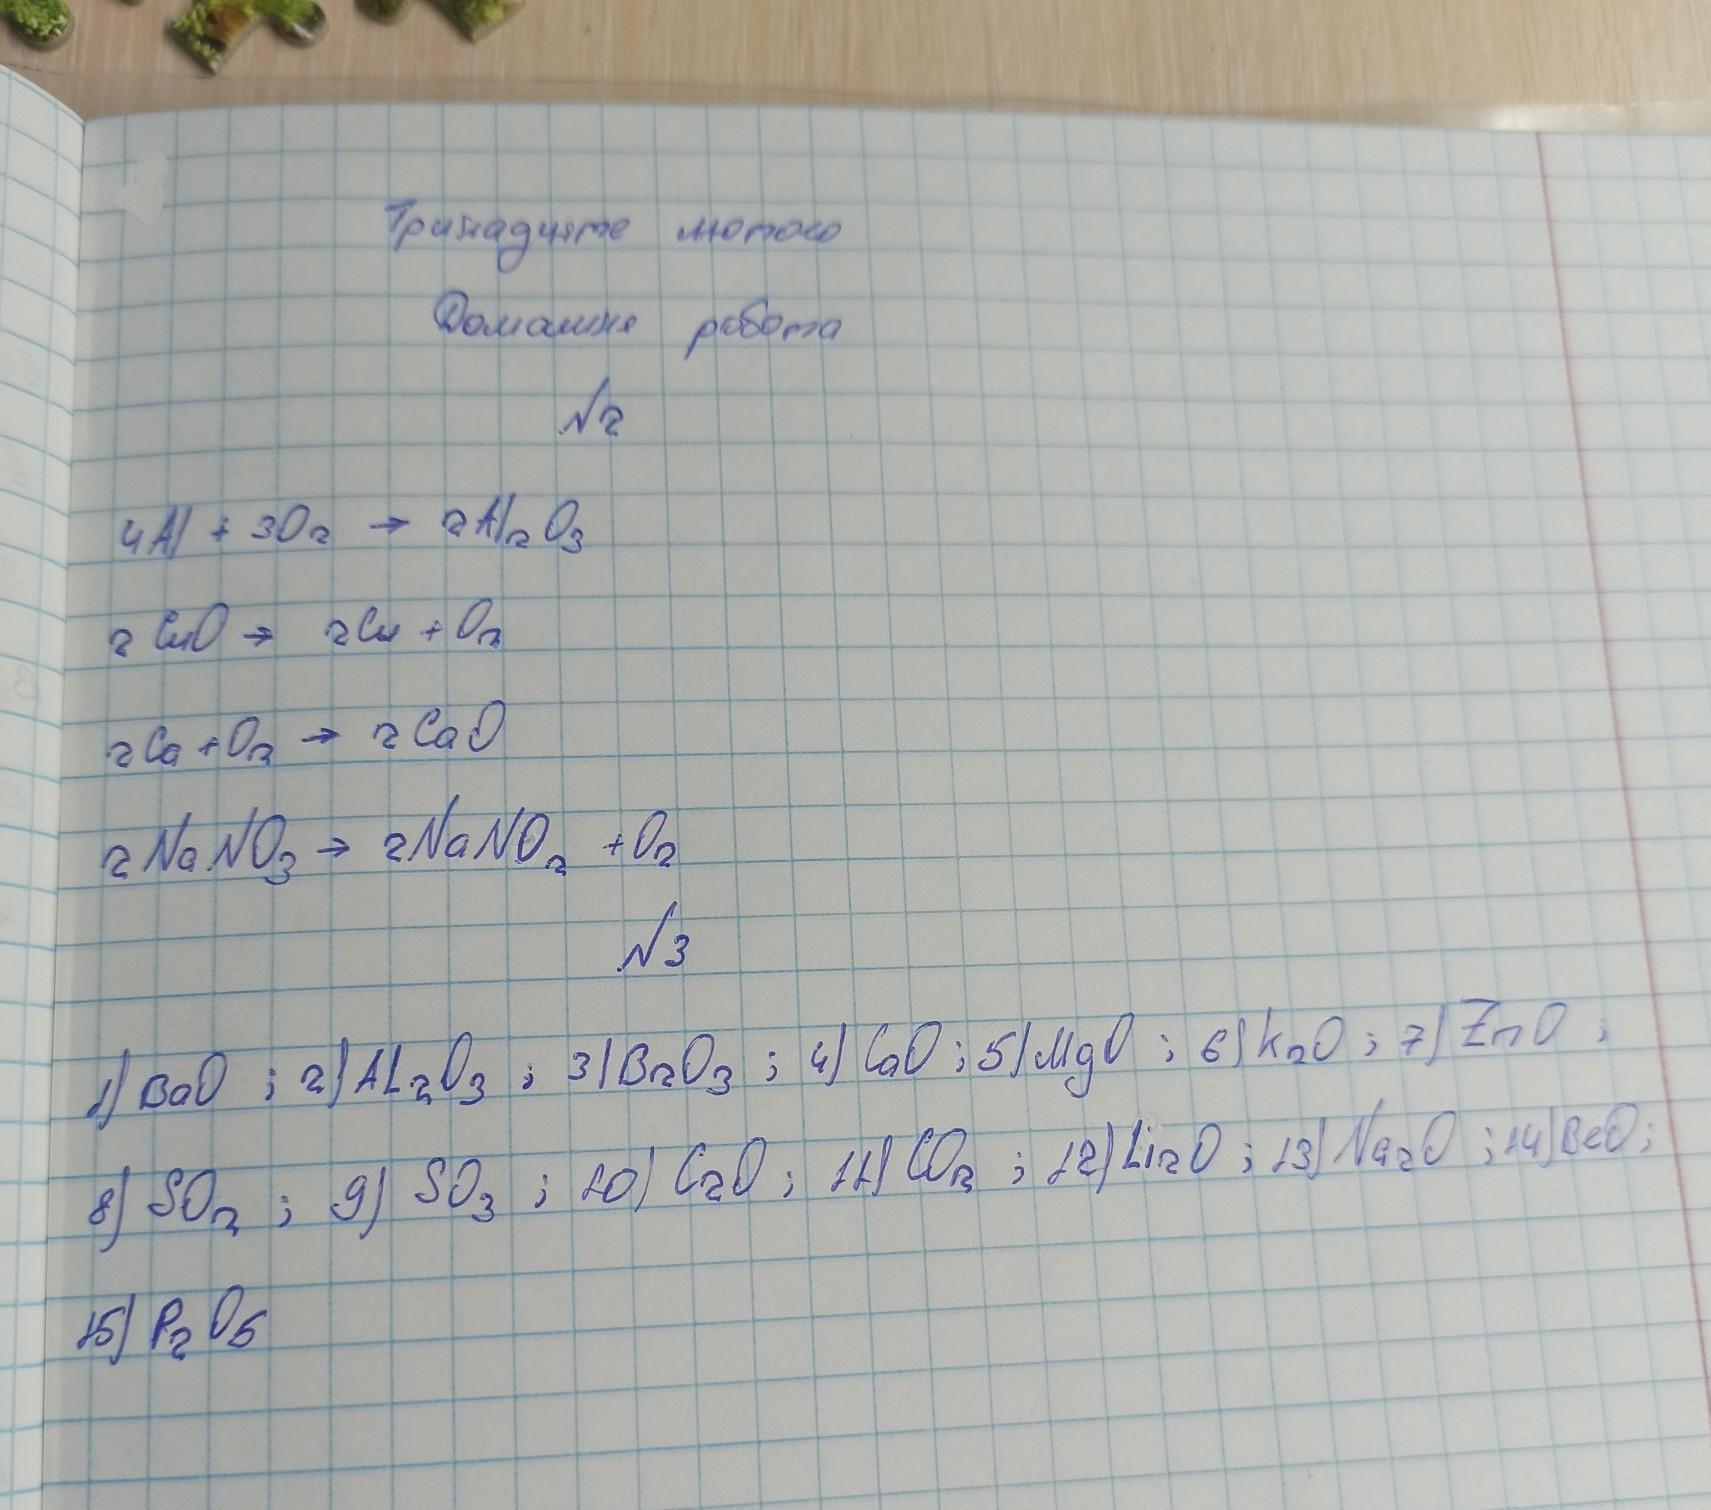 Тринадцяте лютого
Домашня робота
№2
4Al + 3O₂ → 2Al₂O₃
2CuO → 2Cu + O₂
2Ca + O₂ → 2CaO
2NaNO₃ → 2NaNO₂ + O₂
№3
1) BaO ; 2) AL₂O₃ ; 3) B₂O₃ ; 4) CaO ; 5) MgO ; 6) K₂O ; 7) ZnO ;
8) SO₂ ; 9) SO₃ ; 10) C₂O ; 11) CO₂ ; 12) Li₂O ; 13) Na₂O ; 14) BeO ;
15) P₂O₅